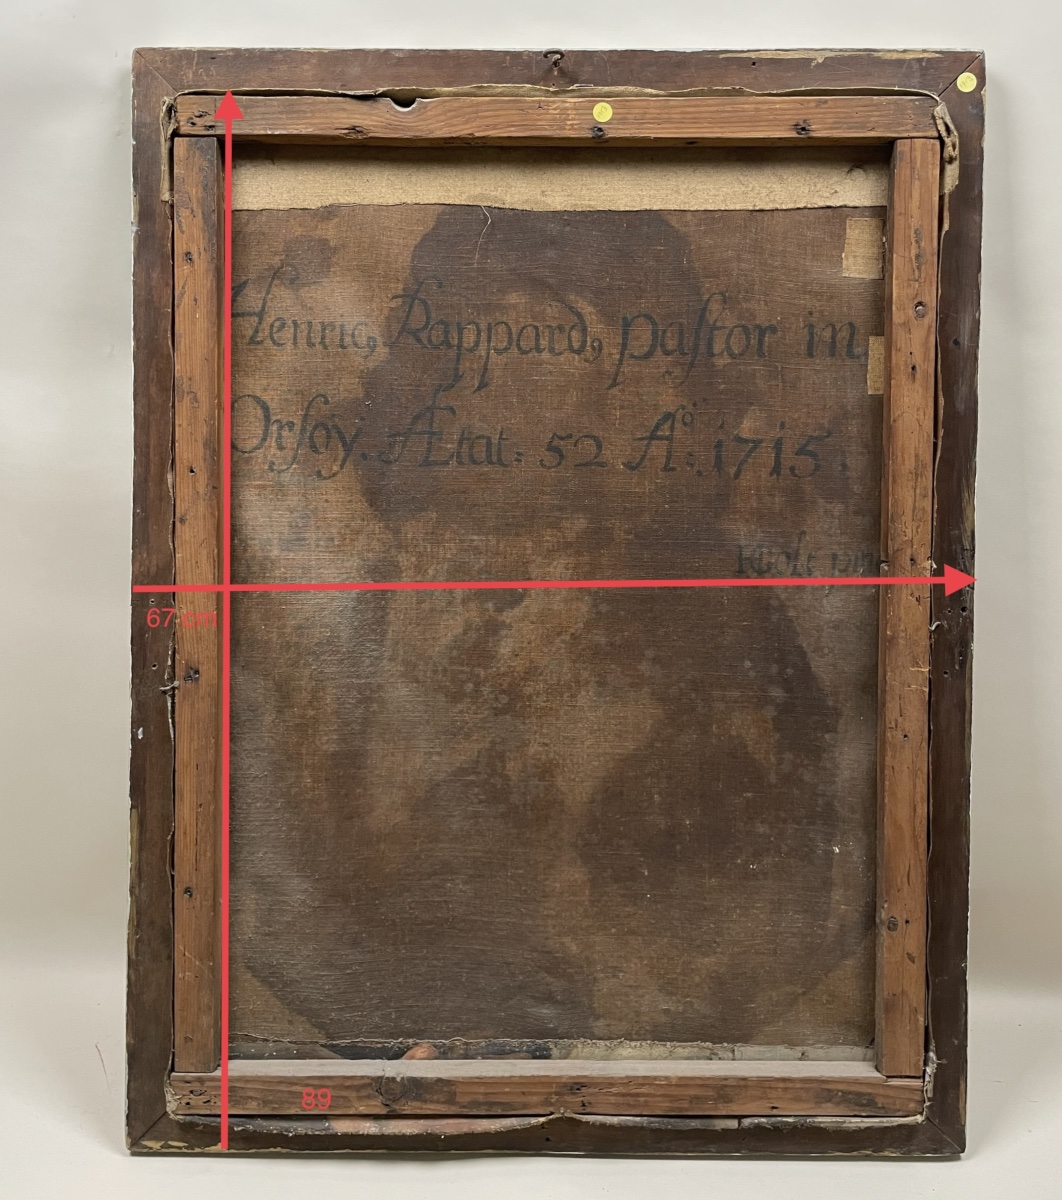 Henric, Rappard, paſtor in
Orſoy. Ætat: 52 Aº: 1715.
pin
67 cm
89